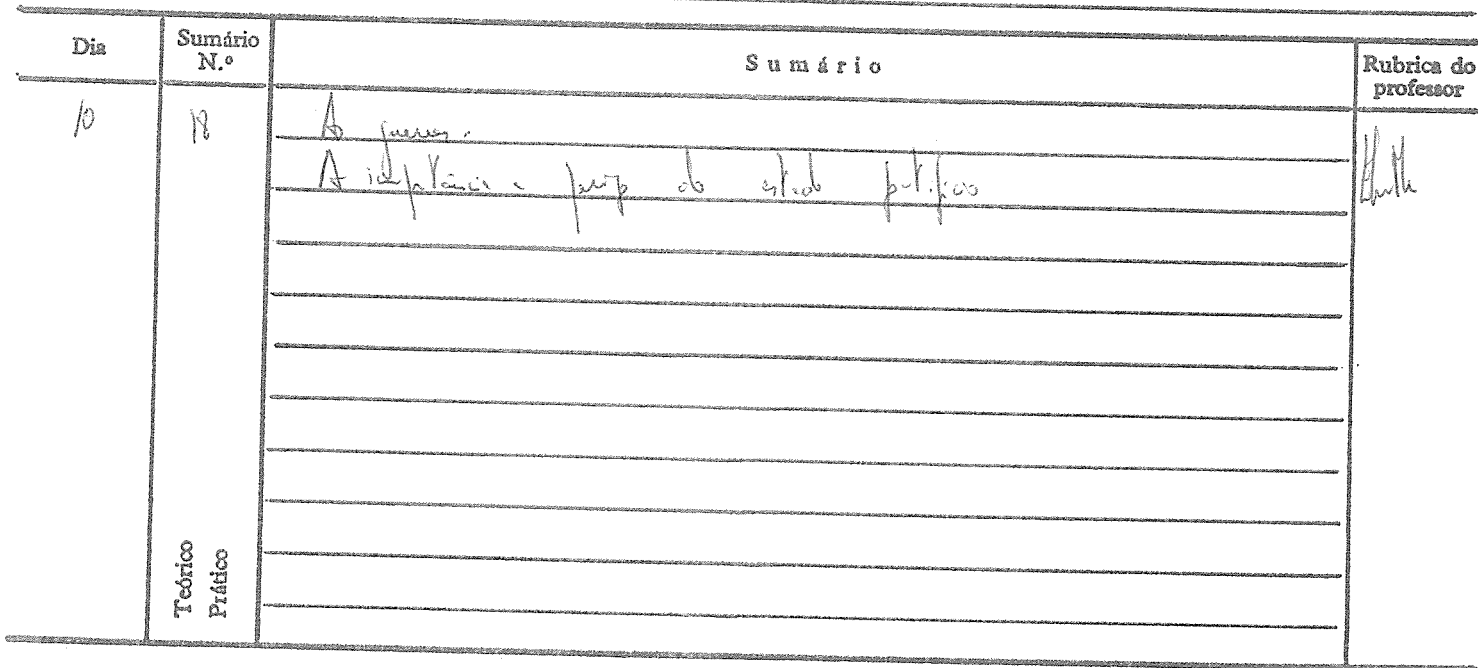 Dia
Sumário N.º
Sumário
Rubrica do professor
10
18
A guerra.
A importância e do estado pontifício
Teórico
Prático